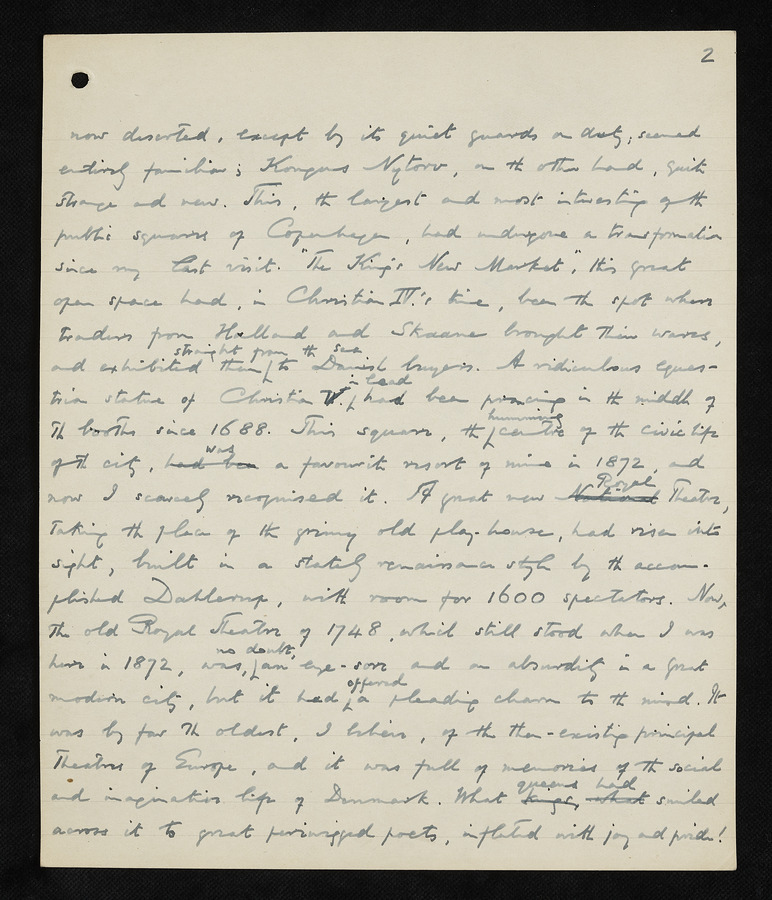 2
now deserted, except by its quiet guards on duty, seemed
entirely familiar; Kongens Nytorv, on the other hand, quite
strange and new. This, the largest and most interesting of the
public squares of Copenhagen, had undergone a transformation
since my last visit. "The King's New Market", this great
open space had, in Christian IV.'s time, been the spot where
traders from Halland and Skaane brought their wares,
straight from the sea
and exhibited them to Danish buyers. A ridiculous eques-
in lead
trian statue of Christian V. had been prancing in the middle of
humming
the booths since 1688. This square, the centre of the civic life
was
of the city, had been a favourite resort of mine in 1872, and
Royal
now I scarcely recognised it. A great new National Theatre,
taking the place of the grimy old play-house, had risen into
sight, built in a stately renaissance style by the accom-
plished Dahlerup, with room for 1600 spectators. Now,
the old Royal Theatre of 1748, which still stood when I was
no doubt,
here in 1872, was, an eye-sore and an absurdity in a great
offered
modern city, but it had a pleading charm to the mind. It
was by far the oldest, I believe, of the then-existing principal
Theatres of Europe, and it was full of memories of the social
queens had
and imaginative life of Denmark. What kings, what smiled
across it to great periwigged poets, inflated with joy and pride!